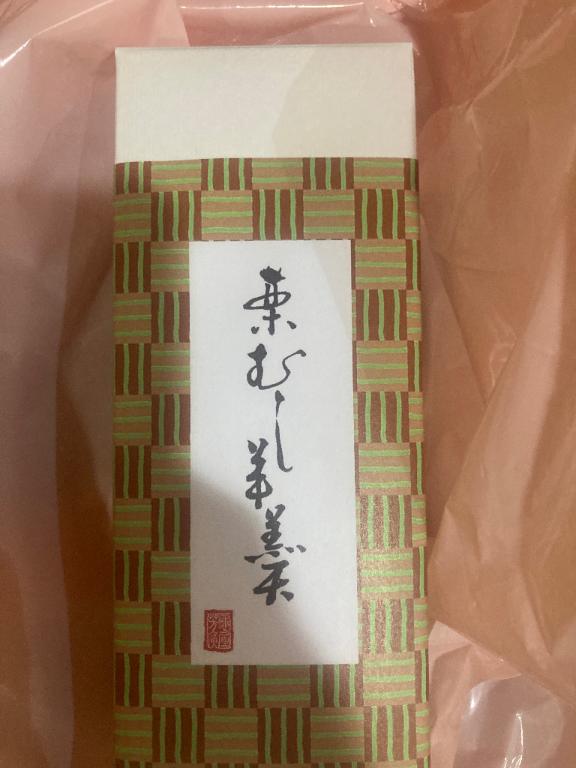 栗むし羊羹